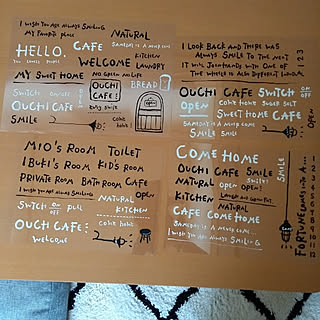 I wish you are always smiling
My favorite place
NATURAL
HELLO. CAFE
SOMEDAY IS A NEVER COME
WELCOME
KITCHEN
LAUNDRY
MY SWEET HOME
NO GREEN NO LIFE
BREAD
SWITCH ON OFF
OUCHI CAFE
OUCHI CAFE
SMILE
come home!
I LOOK BACK AND THERE WAS
ALWAYS SMILE TO THE NEXT
IT WILL JOINTHAND WITH ONE OF
1 2 3
OUCHI CAFE
SWITCH ON OFF
OPEN
COME HOME
SWEET HOME
KITCHEN
SOMEDAY IS A NEVER COME
SMILE
OPEN
MIO'S ROOM TOILET
IBUKI'S ROOM KID'S ROOM
PRIVATE ROOM BATH ROOM CAFE
I wish you are always smiling
OPEN
SWITCH ON OFF PULL
NATURAL
KITCHEN
OUCHI CAFE
come home!
WELCOME
COME HOME
OUCHI CAFE SMILE
NATURAL
OPEN OPEN!
KITCHEN
NATURAL
CAFE COME HOME
SOMEDAY IS A NEVER COME
I wish you are always SMILING
SMILE
FORTUNE COMES IN TO A
1 2 3 4 5 6 7 8 9 10 11 12